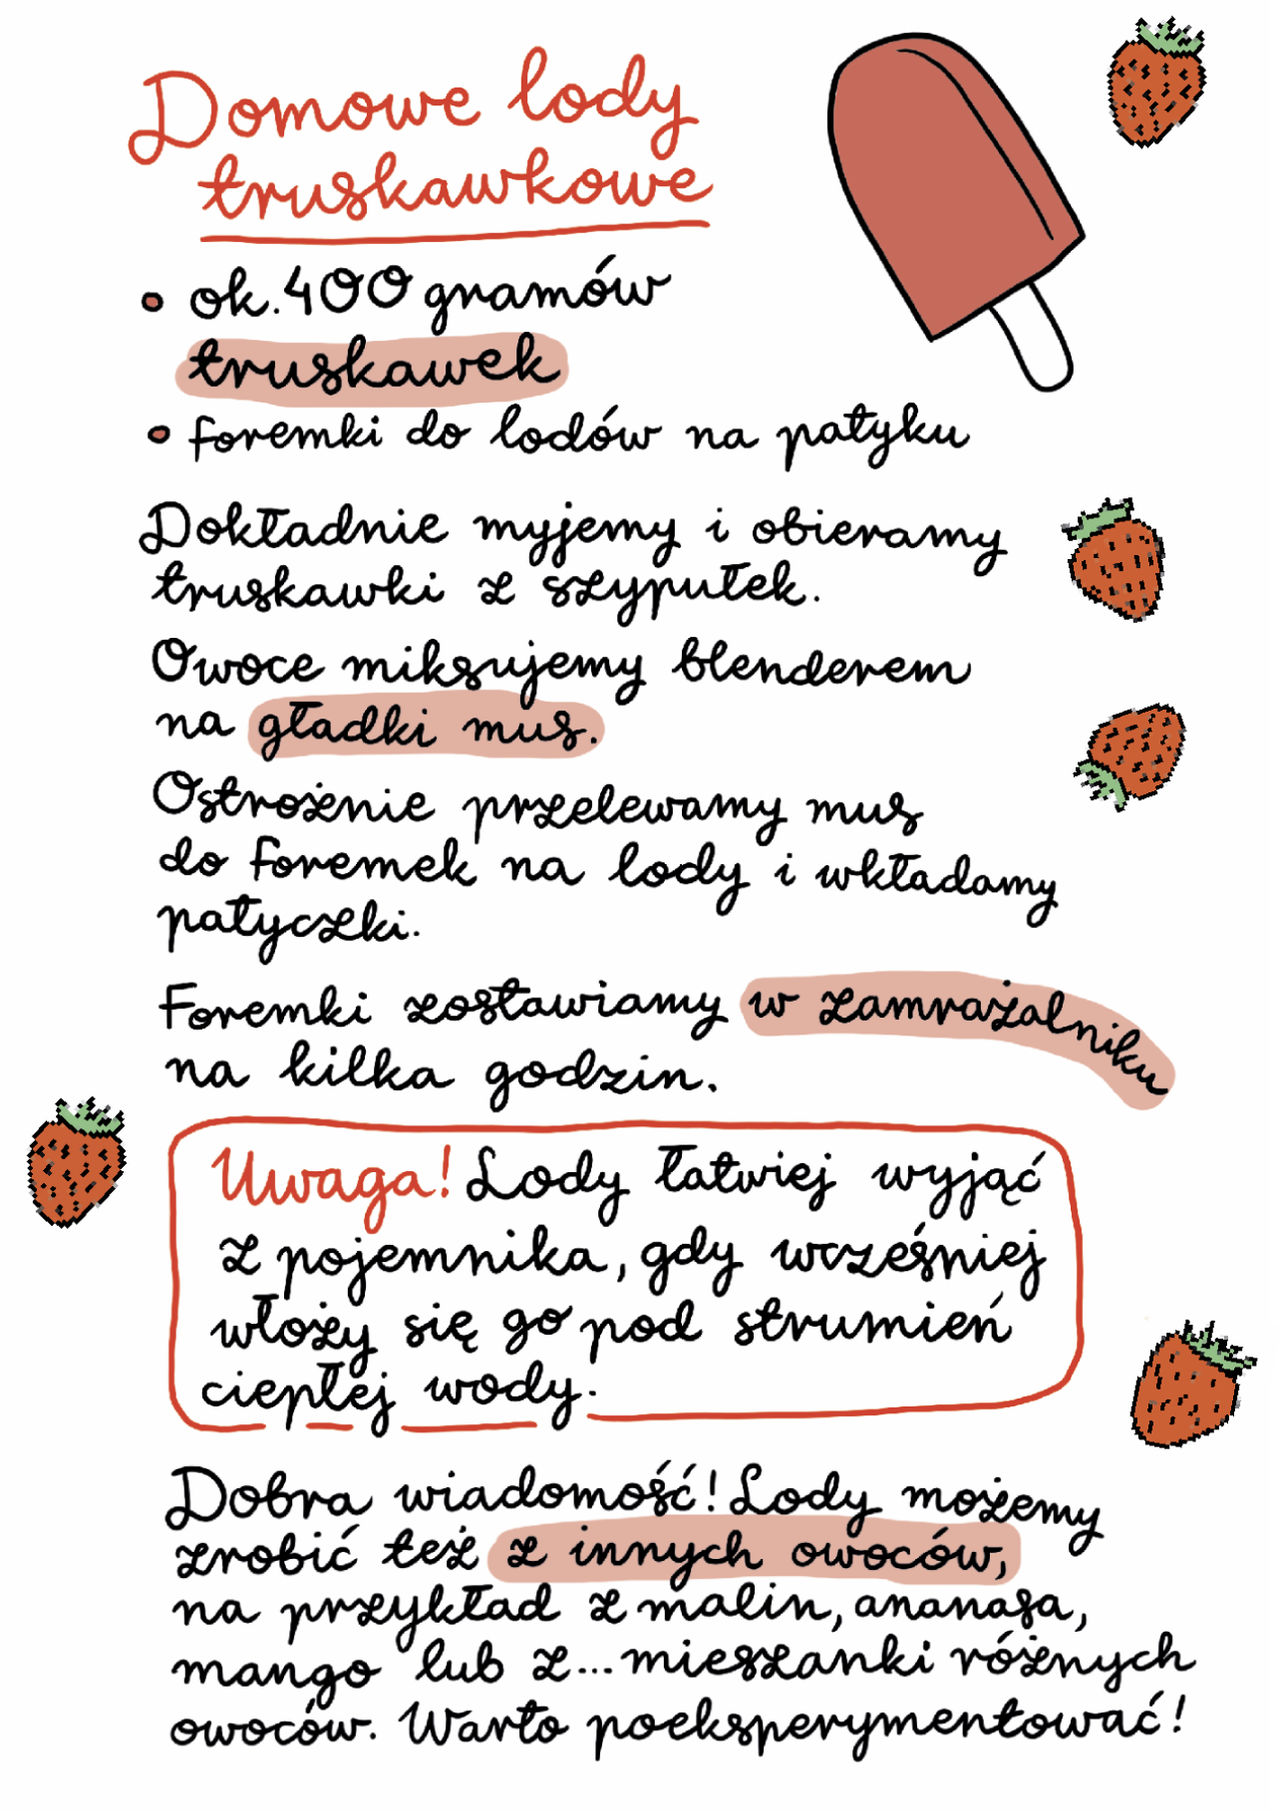 Domowe lody
truskawkowe
• ok. 400 gramów
truskawek
• foremki do lodów na patyku
Dokładnie myjemy i obieramy
truskawki z szypułek.
Owoce miksujemy blenderem
na gładki mus.
Ostrożnie przelewamy mus
do foremek na lody i wkładamy
patyczki.
Foremki zostawiamy w zamrażalniku
na kilka godzin.
Uwaga! Lody łatwiej wyjąć
z pojemnika, gdy wcześniej
włoży się go pod strumień
ciepłej wody.
Dobra wiadomość! Lody możemy
zrobić też z innych owoców,
na przykład z malin, ananasa,
mango lub z... mieszanki różnych
owoców. Warto poeksperymentować!